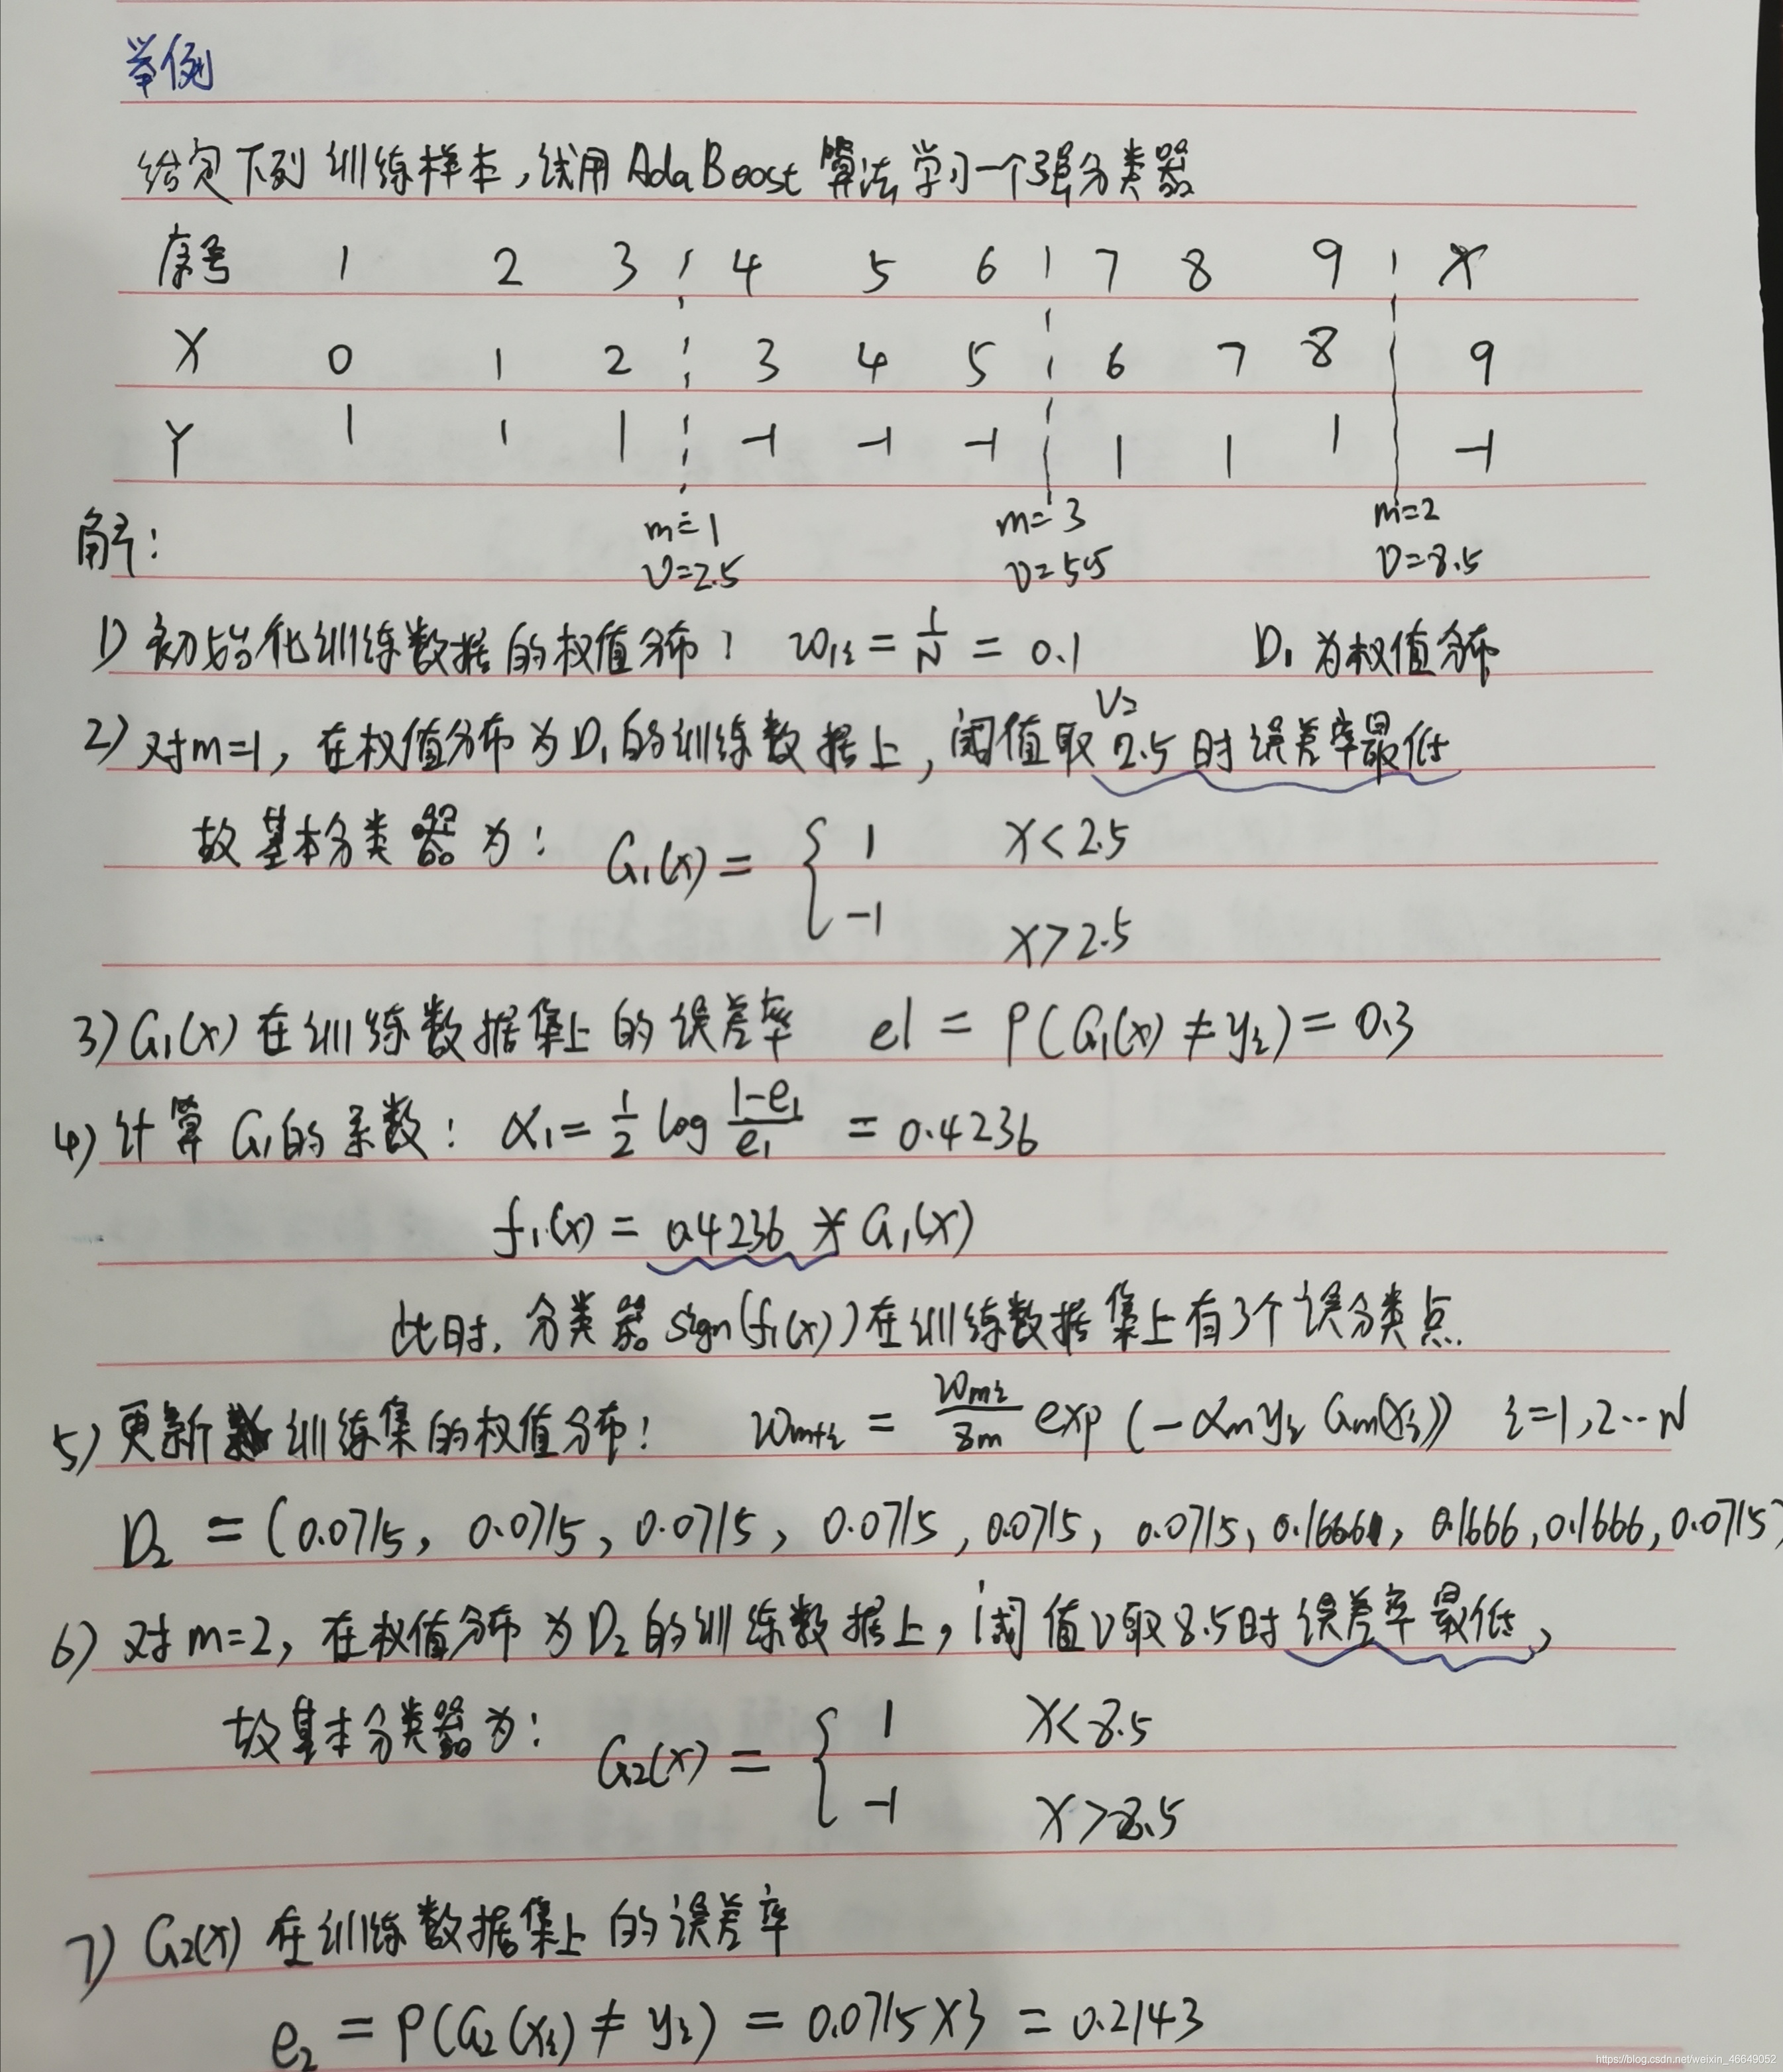 举例
给定下列训练样本,试用AdaBoost算法学习一个强分类器
序号 1 2 3 4 5 6 7 8 9 X
X 0 1 2 3 4 5 6 7 8 9
Y 1 1 1 -1 -1 -1 1 1 1 -1
解: m=1 m=3 m=2
v=2.5 v=5.5 v=8.5
1) 初始化训练数据的权值分布: w₁ᵢ = 1/N = 0.1 D₁ 为权值分布
2) 对m=1, 在权值分布为D₁的训练数据上, 阈值取 V= 2.5 时误差率最低
故基本分类器为: G₁(x) = { 1 x<2.5
-1 x>2.5
3) G₁(x) 在训练数据集上的误差率 e1 = P(G₁(x) ≠ yᵢ) = 0.3
4) 计算G₁的系数: α₁ = 1/2 log (1-e₁)/e₁ = 0.4236
f₁(x) = 0.4236 * G₁(x)
此时, 分类器 sign(f₁(x)) 在训练数据集上有3个误分类点.
5) 更新训练集的权值分布: wₘ₊ᵢ = wₘᵢ/zₘ exp(-αₘyᵢGₘ(xᵢ)) i=1,2…N
D₂ = (0.0715, 0.0715, 0.0715, 0.0715, 0.0715, 0.0715, 0.1666, 0.1666, 0.1666, 0.0715)
6) 对m=2, 在权值分布为D₂的训练数据上, 阈值v取8.5时误差率最低,
故基本分类器为: G₂(x) = { 1 x<8.5
-1 x>8.5
7) G₂(x) 在训练数据集上的误差率
e₂ = P(G₂(xᵢ) ≠ yᵢ) = 0.0715×3 = 0.2143
https://blog.csdn.net/weixin_46649052